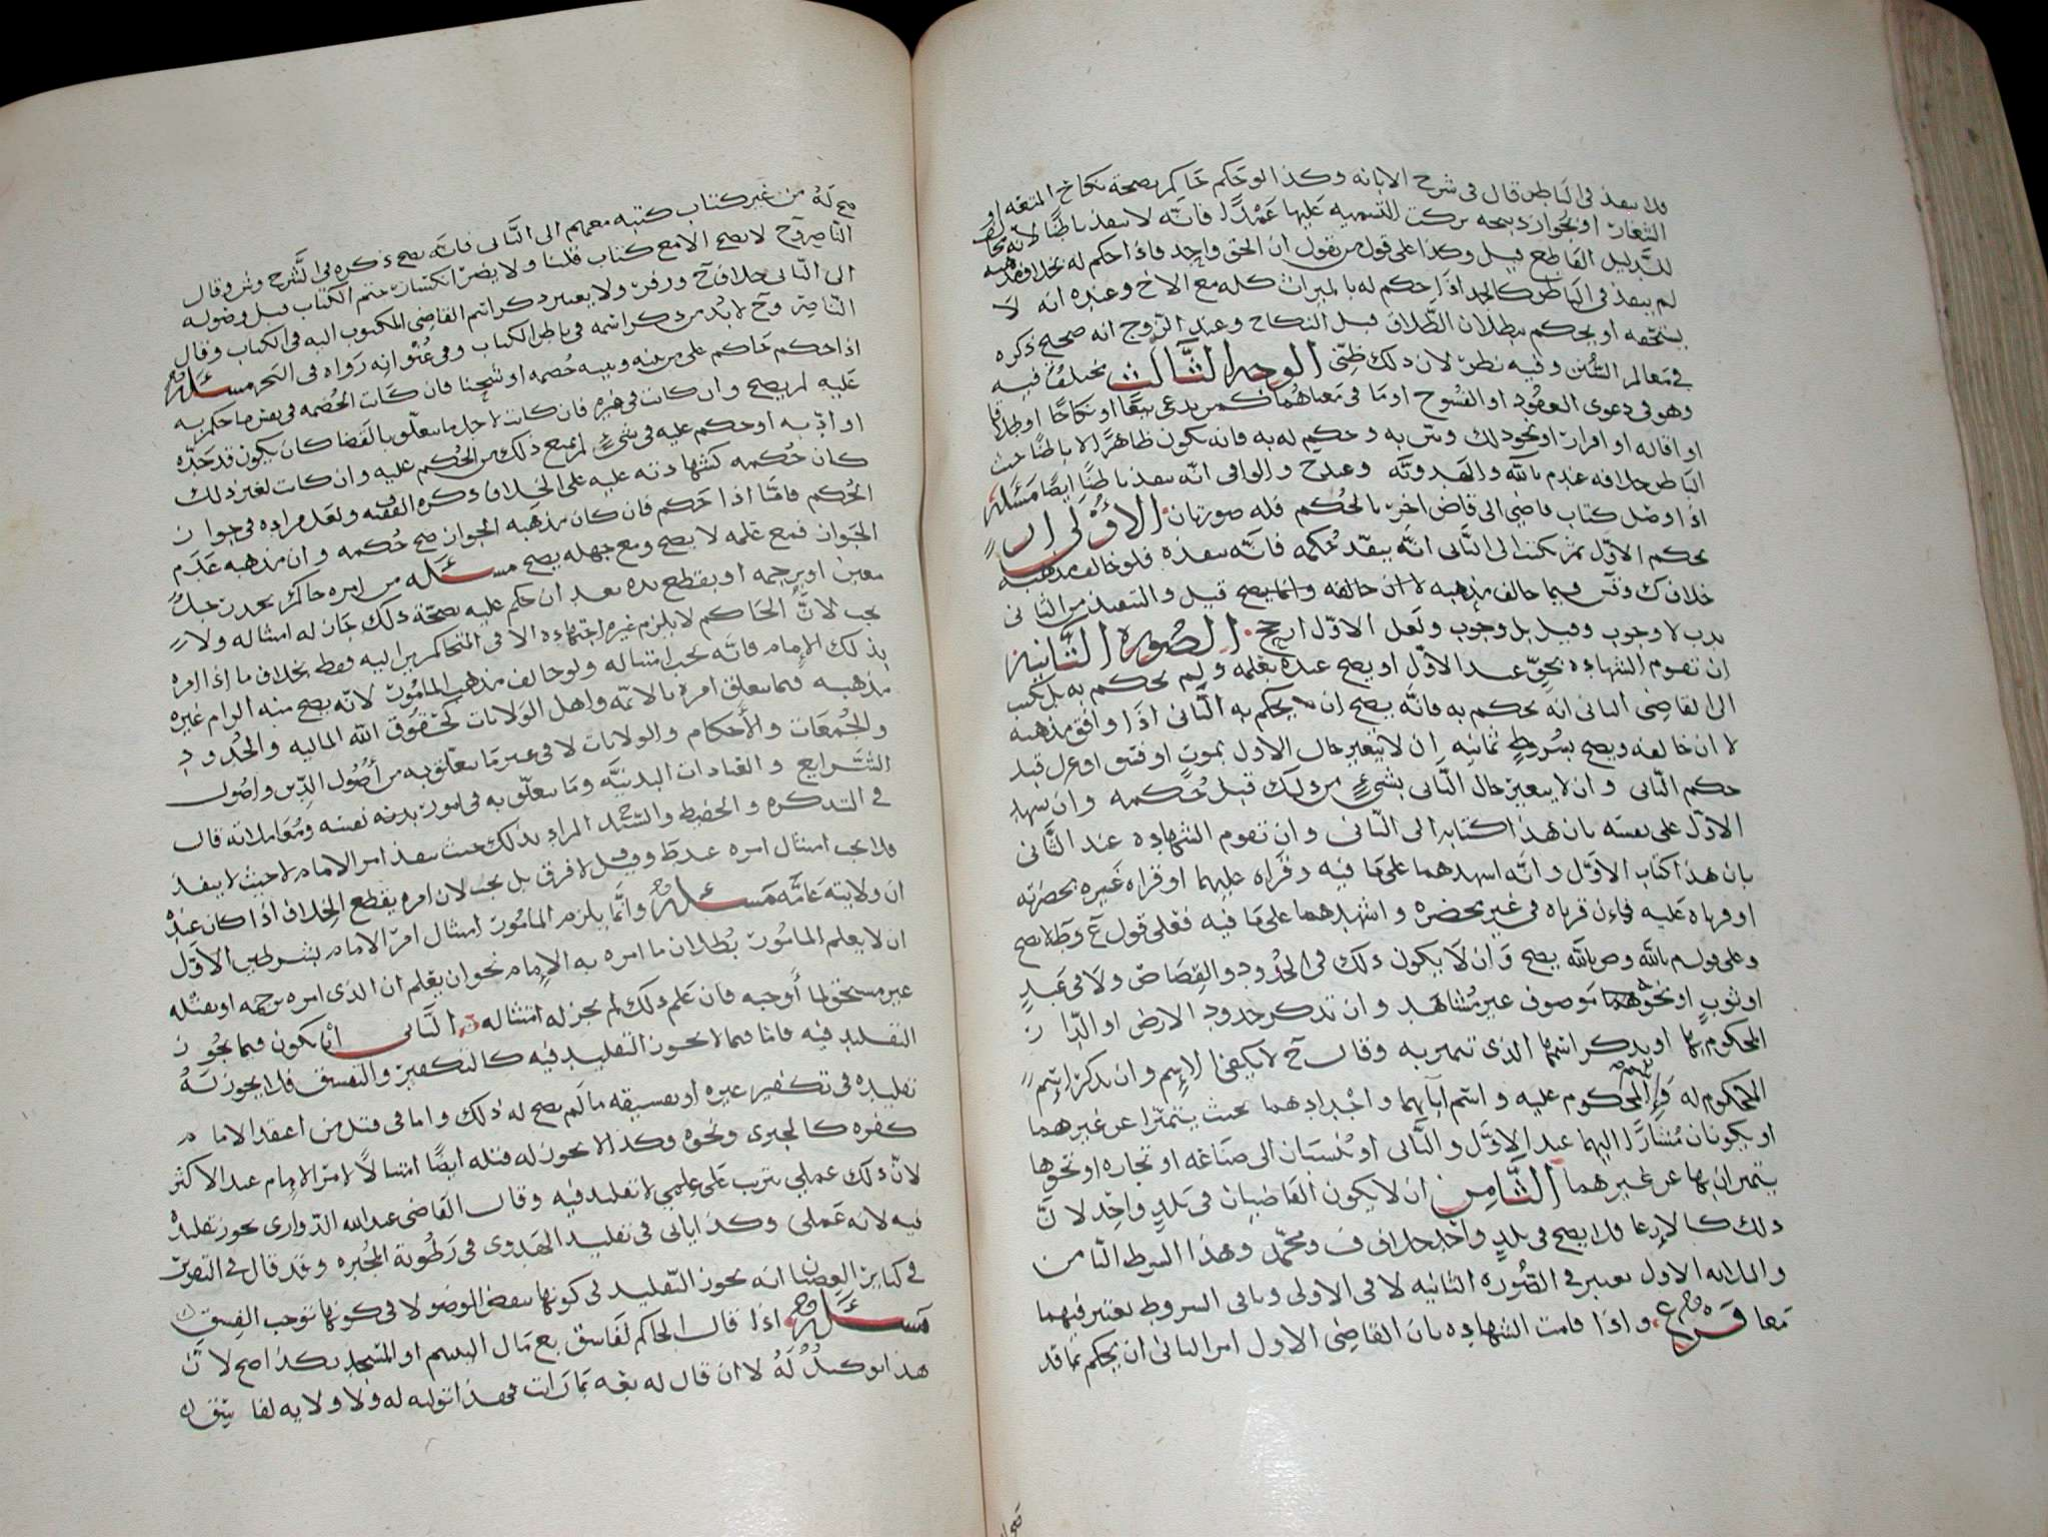 فلا ينفذ في الباطن قال في شرح الابانه وكذا لو حكم حاكم بصحة نكاح المتعه او
الشغار او بجواز ذبيحه تركت التسميه عليها عمدا فانه لا ينفذ باطنا لانه
للدليل القاطع قيل وكذا على قول من يقول ان الحق واحد فاذا حكم له بخلاف مذهبه
لم ينفذ في الباطن كالجد اذا حكم له بالميراث كله مع الاخ وعنده انه لا
يستحقه او يحكم ببطلان الطلاق قبل النكاح وعند الزوج انه صحيح ذكره
في معالم السنن وفيه نظر لان ذلك ظني الوجه الثالث مختلف فيه
وهو في دعوى العقود او الفسوخ او ما في معناهما كمن يدعي بيعا او نكاحا او طلاقا
او اقاله او اقرار او نحو ذلك وبين به وحكم له به فانه يكون ظاهرا لا باطنا حيث
الباطن خلافه عندم بالله والهدويه وعند ح والوافي انه ينفذ باطنا ايضا مسئله
اذا وصل كتاب قاضي الى قاض اخر بالحكم فله صورتان الاولى ان
يحكم الاول ثم يكتب الى الثاني انه ينفذ حكمه فانه ينفذه فلو خالف مذهبه
خلاف ك وش فيما خالف مذهبه لا ان خالفه وانما يصح قيل والتنفيذ من الثاني
ندب لا وجوب وقيل بل وجوب ولعل الاول ارجح الصوره الثانيه
ان تقوم الشهاده بحق عند الاول او يصح عنده بعلمه ولم يحكم به بل كتب
الى القاضي الثاني انه يحكم به فانه يصح ان يحكم به الثاني اذا وافق مذهبه
لا ان خالفه ويصح بشروط ثمانيه ان لا يتغير حال الاول بموت او فسق او عزل قبل
حكم الثاني وان لا يتغير حال الثاني بشيء من ذلك قبل حكمه وان يشهد
الاول على نفسه بان هذا كتابه الى الثاني وان تقوم الشهاده عند الثاني
بان هذا كتاب الاول وانه اشهدهما على ما فيه وقراه عليهما او قراه غيره بحضرته
او قرياه عليه فان قرياه في غير محضره واشهدهما على ما فيه فعلى قول ع وط لا يصح
وعلى قول م بالله وص بالله يصح وان لا يكون ذلك في الحدود والقصاص ولا في عبد
او ثوب او نحوهما موصوف غير مشاهد وان تذكر حدود الارض او الدار
المحكوم بها او يذكر اسمها الذي تتميز به وقال ح لا يكفي الاسم وان يذكر اسم
المحكوم له والمحكوم عليه واسم آبائهما واجدادهما بحيث يتميزا عن غيرهما
او يكونان مشارا اليهما عند الاول والثاني او ينسبان الى صناعه او تجاره او نحوها
يتميزان بها عن غيرهما الثامن ان لا يكون القاضيان في بلد واحد لان
ذلك كالارعا فلا يصح في بلد واحد خلاف ف ومحمد وهذا الشرط الثامن
والثلاثه الاول تعتبر في الصوره الثانيه لا في الاولى وباقي الشروط تعتبر فيهما
معا فرع واذا قامت الشهاده بان القاضي الاول امر الثاني ان يحكم بما قد
صح له من غير كتاب كتبه معهم الى الثاني فانه يصح ذكره في الشرح وش وقال
الناصر وح لا يصح الا مع كتاب قلنا ولا يضر انكسار ختم الكتاب قبل وصوله
الى الثاني خلاف ح وزفر ولا يعتبر ذكر اسم القاضي المكتوب اليه في الكتاب وقال
الناصر وح لا بد من ذكر اسمه في باطن الكتاب وفي عنوانه رواه في البحر مسئله
اذا حكم حاكم على من بينه وبينه خصمه او شجنا فان كانت الخصمه في نفس ما حكم به
عليه لم يصح وان كانت في غيره فان كانت لاجل ما يتعلق بالقضا كان يكون قد حده
او ادبه او حكم عليه في شيء لم يمنع ذلك من الحكم عليه وان كانت لغير ذلك
كان حكمه كشهادته عليه على الخلاف ذكره الفقيه ف ولعل مراده في جواز
الحكم فاما اذا حكم فان كان مذهبه الجواز صح حكمه وان مذهبه عدم
الجواز فمع علمه لا يصح ومع جهله يصح مسئله من امره حاكم بحد رجل
معين او برجمه او بقطع يده بعد ان حكم عليه بصحة ذلك جاز له امتثاله ولا
يجب لان الحاكم لا يلزم غيره اجتهاده الا في المتحاكمين اليه فقط بخلاف ما اذا امره
بذلك الامام فانه يجب امتثاله ولو خالف مذهب المامور لانه يصح منه الزام غيره
مذهبه فيما يتعلق امره بالائمه واهل الولايات كحقوق الله الماليه والحدود
والجمعات والاحكام والولايات لا في غير ما يتعلق به من أصول الدين واصول
الشرايع والعبادات البدنيه وما يتعلق به في امور بدنه نفسه ومعاملاته قال
في التذكره والحفيظ والسيد المراد بذلك حيث ينفذ امر الامام لا حيث لا ينفذ
فلا يجب امتثال امره عند ط وقيل لا فرق بل يجب لان امره يقطع الخلاف اذا كان عنده
ان ولايته عامه مسئله وانما يلزم المامور امتثال امر الامام بشرطين الاول
ان لا يعلم المامور بطلان ما امره به الامام نحو ان يعلم ان الذي امره برجمه او بقتله
غير مستحق لما أوجبه فان علم ذلك لم يجز له امتثاله الثاني أن يكون فيما يجوز
التقليد فيه فاما فيما لا يجوز التقليد فيه كالتكفير والتفسيق فلا يجوز له
تقليده في تكفير غيره او تفسيقه ما لم يصح له ذلك واما في قتل من اعتقد الامام
كفره كالمجبري ونحوه وكذا لا يجوز له قتله ايضا امتثالا لامر الامام عند الاكثر
لان ذلك عملي يترتب على علمي لا تقليد فيه وقال القاضي عبدالله الدواري يجوز تقليده
فيه لانه عملي وكذا ياتي في تقليد الهدوي في رطوبة المجبره وقد قال في التقرير
في كبائر العصيان انه يجوز التقليد في كونها بنقض الوضو لا في كونها توجب الفسق
مسئله اذا قال الحاكم لفاسق بع مال اليتيم او المسجد بكذا صح لان
هذا توكيل له لا ان قال له بعه بما رات فهذا توليه له ولا ولايه لفاسق